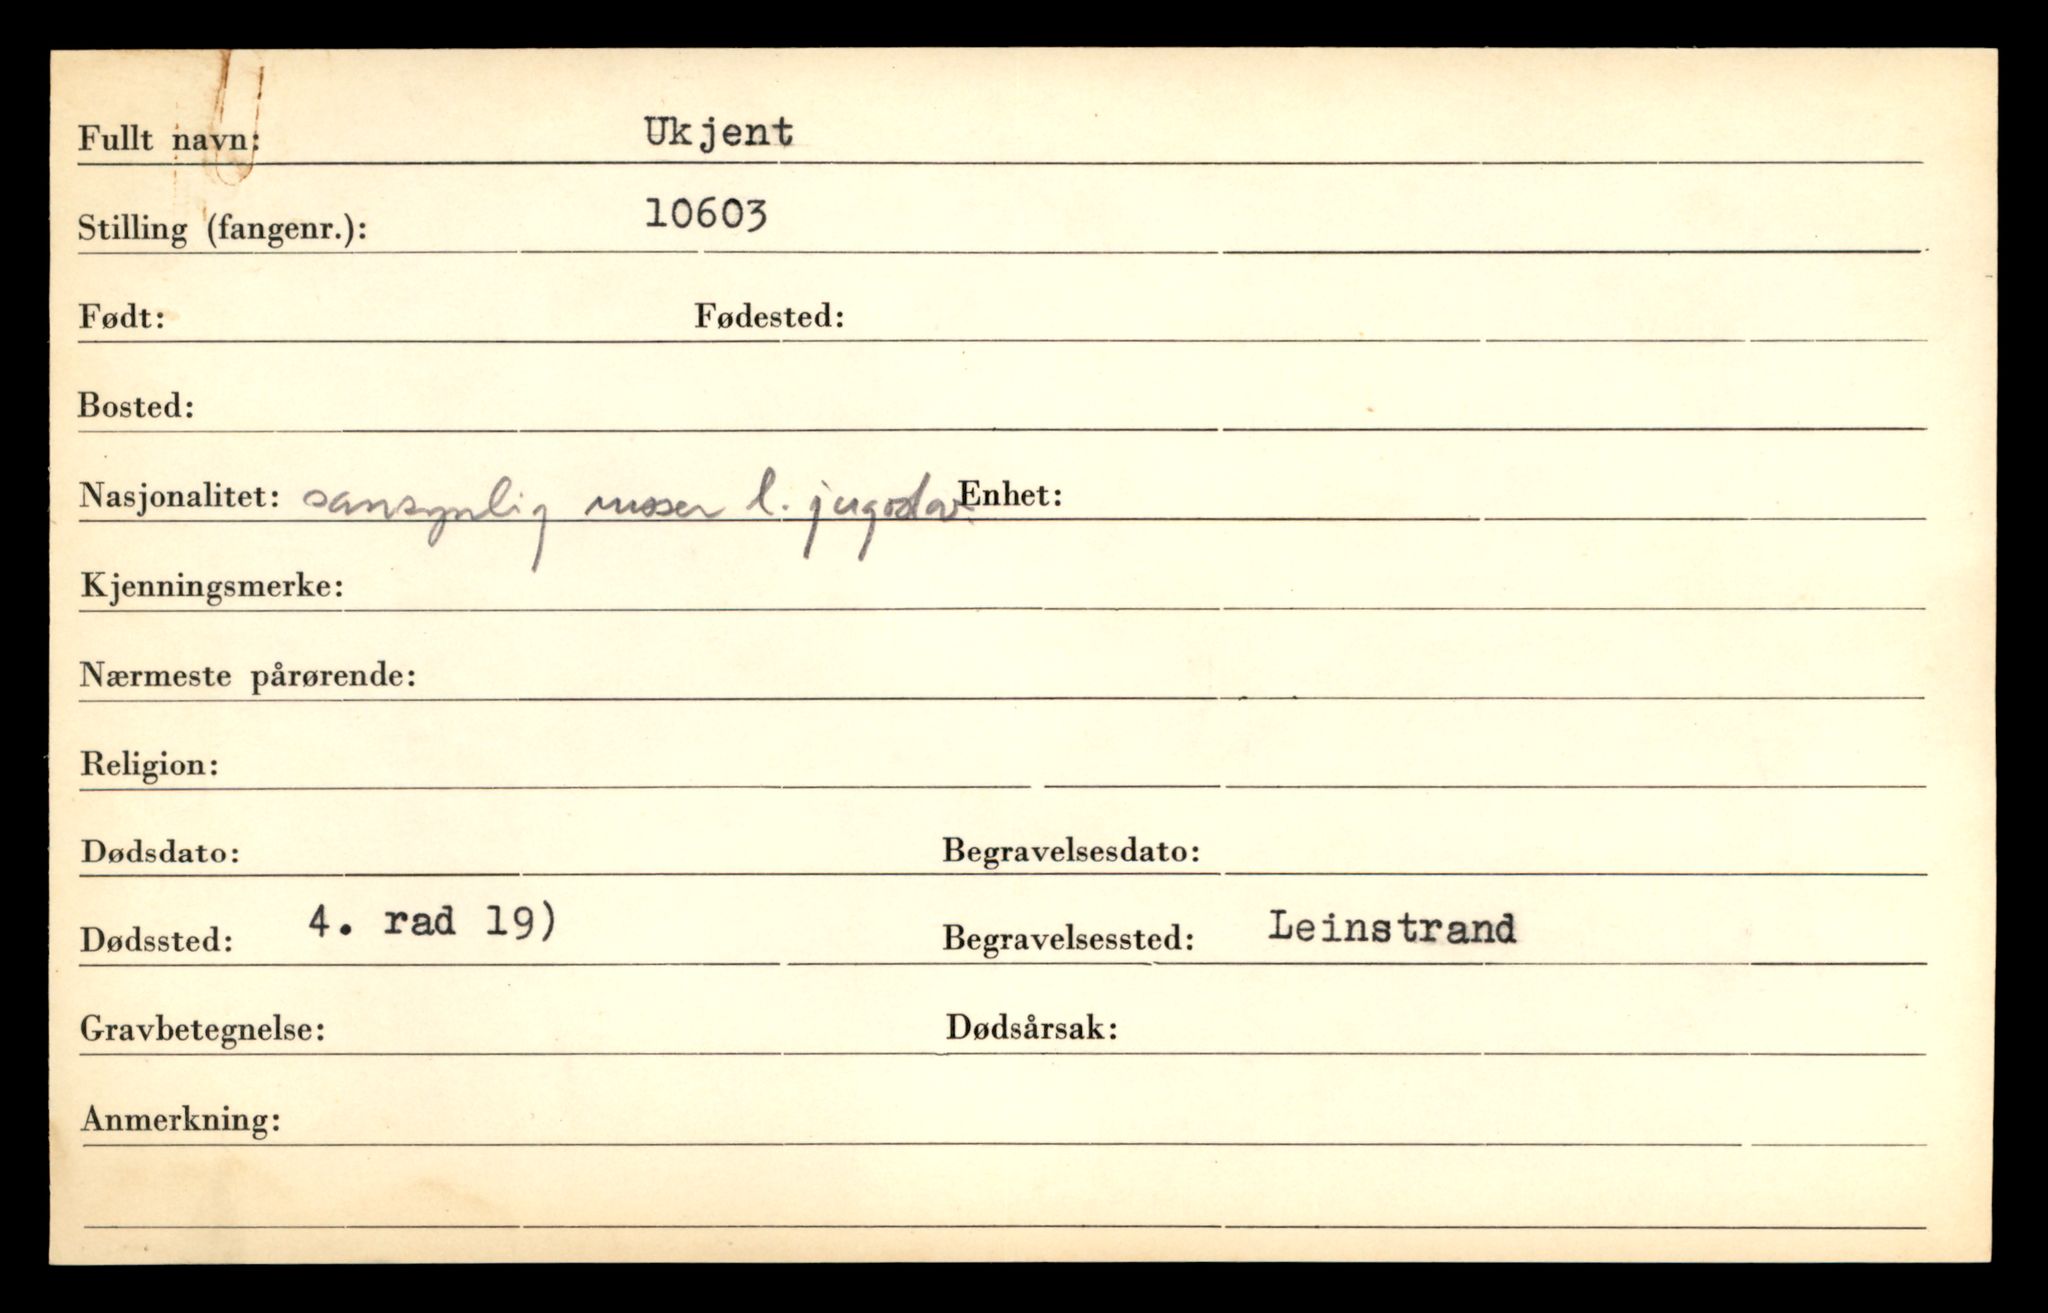 Fullt navn: Ukjent
Stilling (fangenr.): 10603
Født: Fødested:
Bosted:
Nasjonalitet: sansynlig russer l. jugoslav. Enhet:
Kjenningsmerke:
Nærmeste pårørende:
Religion:
Dødsdato: Begravelsesdato:
Dødssted: 4. rad 19) Begravelsessted: Leinstrand
Gravbetegnelse: Dødsårsak:
Anmerkning: